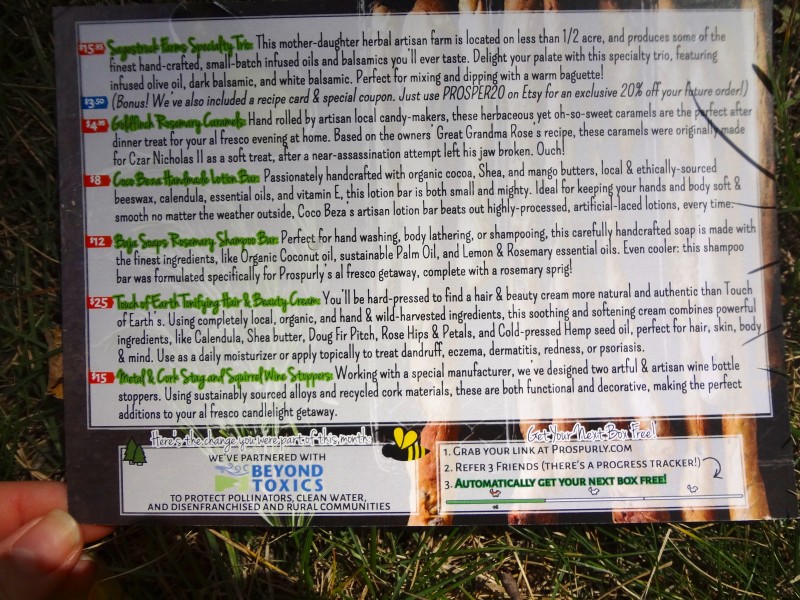 $15.95 Sagestruck Farms Specialty Trio: This mother-daughter herbal artisan farm is located on less than 1/2 acre, and produces some of the
finest hand-crafted, small-batch infused oils and balsamics you'll ever taste. Delight your palate with this specialty trio, featuring
infused olive oil, dark balsamic, and white balsamic. Perfect for mixing and dipping with a warm baguette!
$3.50 (Bonus! We ve also included a recipe card & special coupon. Just use PROSPER20 on Etsy for an exclusive 20% off your future order!)
$4.95 Goldfinch Rosemary Caramels: Hand rolled by artisan local candy-makers, these herbaceous yet oh-so-sweet caramels are the perfect after
dinner treat for your al fresco evening at home. Based on the owners' Great Grandma Rose s recipe, these caramels were originally made
for Czar Nicholas II as a soft treat, after a near-assassination attempt left his jaw broken. Ouch!
$8 Coco Beza Handmade Lotion Bar: Passionately handcrafted with organic cocoa, Shea, and mango butters, local & ethically-sourced
beeswax, calendula, essential oils, and vitamin E, this lotion bar is both small and mighty. Ideal for keeping your hands and body soft &
smooth no matter the weather outside, Coco Beza s artisan lotion bar beats out highly-processed, artificial-laced lotions, every time.
$12 Baja Soaps Rosemary Shampoo Bar: Perfect for hand washing, body lathering, or shampooing, this carefully handcrafted soap is made with
the finest ingredients, like Organic Coconut oil, sustainable Palm Oil, and Lemon & Rosemary essential oils. Even cooler: this shampoo
bar was formulated specifically for Prospurly s al fresco getaway, complete with a rosemary sprig!
$25 Touch of Earth Tonifying Hair & Beauty Cream: You'll be hard-pressed to find a hair & beauty cream more natural and authentic than Touch
of Earth s. Using completely local, organic, and hand & wild-harvested ingredients, this soothing and softening cream combines powerful
ingredients, like Calendula, Shea butter, Doug Fir Pitch, Rose Hips & Petals, and Cold-pressed Hemp seed oil, perfect for hair, skin, body
& mind. Use as a daily moisturizer or apply topically to treat dandruff, eczema, dermatitis, redness, or psoriasis.
$15 Metal & Cork Stag and Squirrel Wine Stoppers: Working with a special manufacturer, we ve designed two artful & artisan wine bottle
stoppers. Using sustainably sourced alloys and recycled cork materials, these are both functional and decorative, making the perfect
additions to your al fresco candlelight getaway.
Here's the change you were part of this month:
WE'VE PARTNERED WITH
BEYOND
TOXICS
TO PROTECT POLLINATORS, CLEAN WATER,
AND DISENFRANCHISED AND RURAL COMMUNITIES
Get Your Next Box Free!
1. GRAB YOUR LINK AT PROSPURLY.COM
2. REFER 3 FRIENDS (THERE'S A PROGRESS TRACKER!)
3. AUTOMATICALLY GET YOUR NEXT BOX FREE!